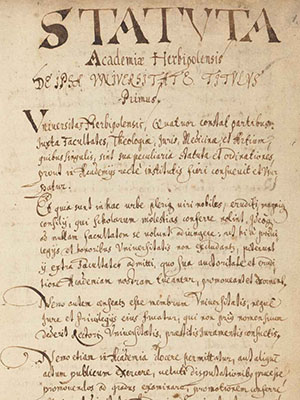 STATUTA
Academiæ Herbipolensis
DE IPSA UNIVERSITATE TITULUS
Primus.
Universitas Herbipolensis, Quatuor constat partibus,
juxta Facultates, Theologiæ, Juris, Medicinæ, et Artium,
quibus singulis, sint sua peculiaria Statuta et ordinationes,
prout in Academijs recte institutis fieri consuevit et
Et quia sunt in hac urbe pleriq viri nobiles, eruditi, magniq
consilij, qui scholarum molestias conferre nolint,
ad nullam facultatem se volunt adjungere; ut hi à privi
legijs, et honoribus Universitatis non excludantur, poterunt
extra Facultates admitti, quo sua autoritate et erudi
tione Academiam nostram tueantur, promoveant et exornent.
Nemo autem censeatur esse membrum Universitatis, neque
Jure et Privilegijs eius fruatur, qui non prius nomen suum
dederit Rectori Universitatis, præstitis Juramentis consuetis.
Nemo etiam in Academia docere permittatur, aut aliquem
actum publicum exercere, veluti disputationibus præesse
promovendos ad gradus examinare, promotionem